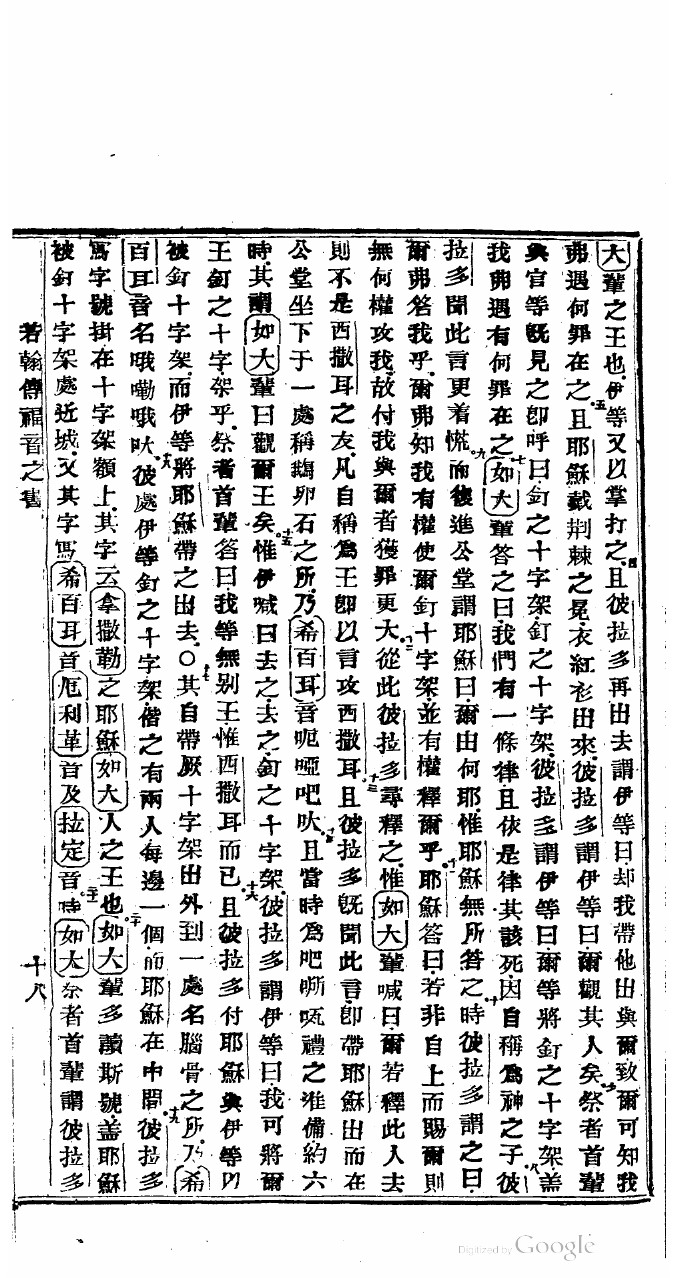 大輩之王也伊等又以掌打之四且彼拉多再出去謂伊等曰却我帶他出與爾致爾可知我
弗遇何罪在之五且耶穌戴荊棘之冕衣紅衫出來彼拉多謂伊等曰爾觀其人矣六祭者首輩
與官等既見之卽呼曰釘之十字架釘之十字架彼拉多謂伊等曰爾等將釘之十字架蓋
我弗遇有何罪在之七如大輩答之曰我們有一條律且依是律其該死因自稱爲神之子八彼
拉多聞此言更着慌九而後進公堂謂耶穌曰爾由何耶惟耶穌無所答之十時彼拉多謂之曰
爾弗答我乎爾弗知我有權使爾釘十字架並有權釋爾乎十一耶穌答曰若非自上而賜爾則
無何權攻我故付我與爾者獲罪更大十二從此彼拉多尋釋之惟如大輩喊曰爾若釋此人去
則不是西撒耳之友凡自稱爲王卽以言攻西撒耳十三且彼拉多既聞此言卽帶耶穌出而在
公堂坐下于一處稱鵝卵石之所乃希百耳音呃啞吧吠十四且當時爲吧嘶㖇禮之准備約六
時其謂如大輩曰觀爾王矣十五惟伊喊曰去之去之釘之十字架彼拉多謂伊等曰我可將爾
王釘之十字架乎祭者首輩答曰我等無別王惟西撒耳而已十六且彼拉多付耶穌與伊等以
被釘十字架而伊等將耶穌帶之出去○十七其自帶厥十字架出外到一處名腦骨之所乃希
百耳音名哦嘞哦吠十八彼處伊等釘之十字架偕之有兩人每邊一個而耶穌在中間十九彼拉多
寫字號掛在十字架額上其字云拿撒勒之耶穌如大人之王也二十如大輩多讀斯號蓋耶穌
被釘十字架處近城又其字寫希百耳音厄利革音及拉定音二一時如大祭者首輩謂彼拉多
若翰傳福音之書
十八
Digitized by Google